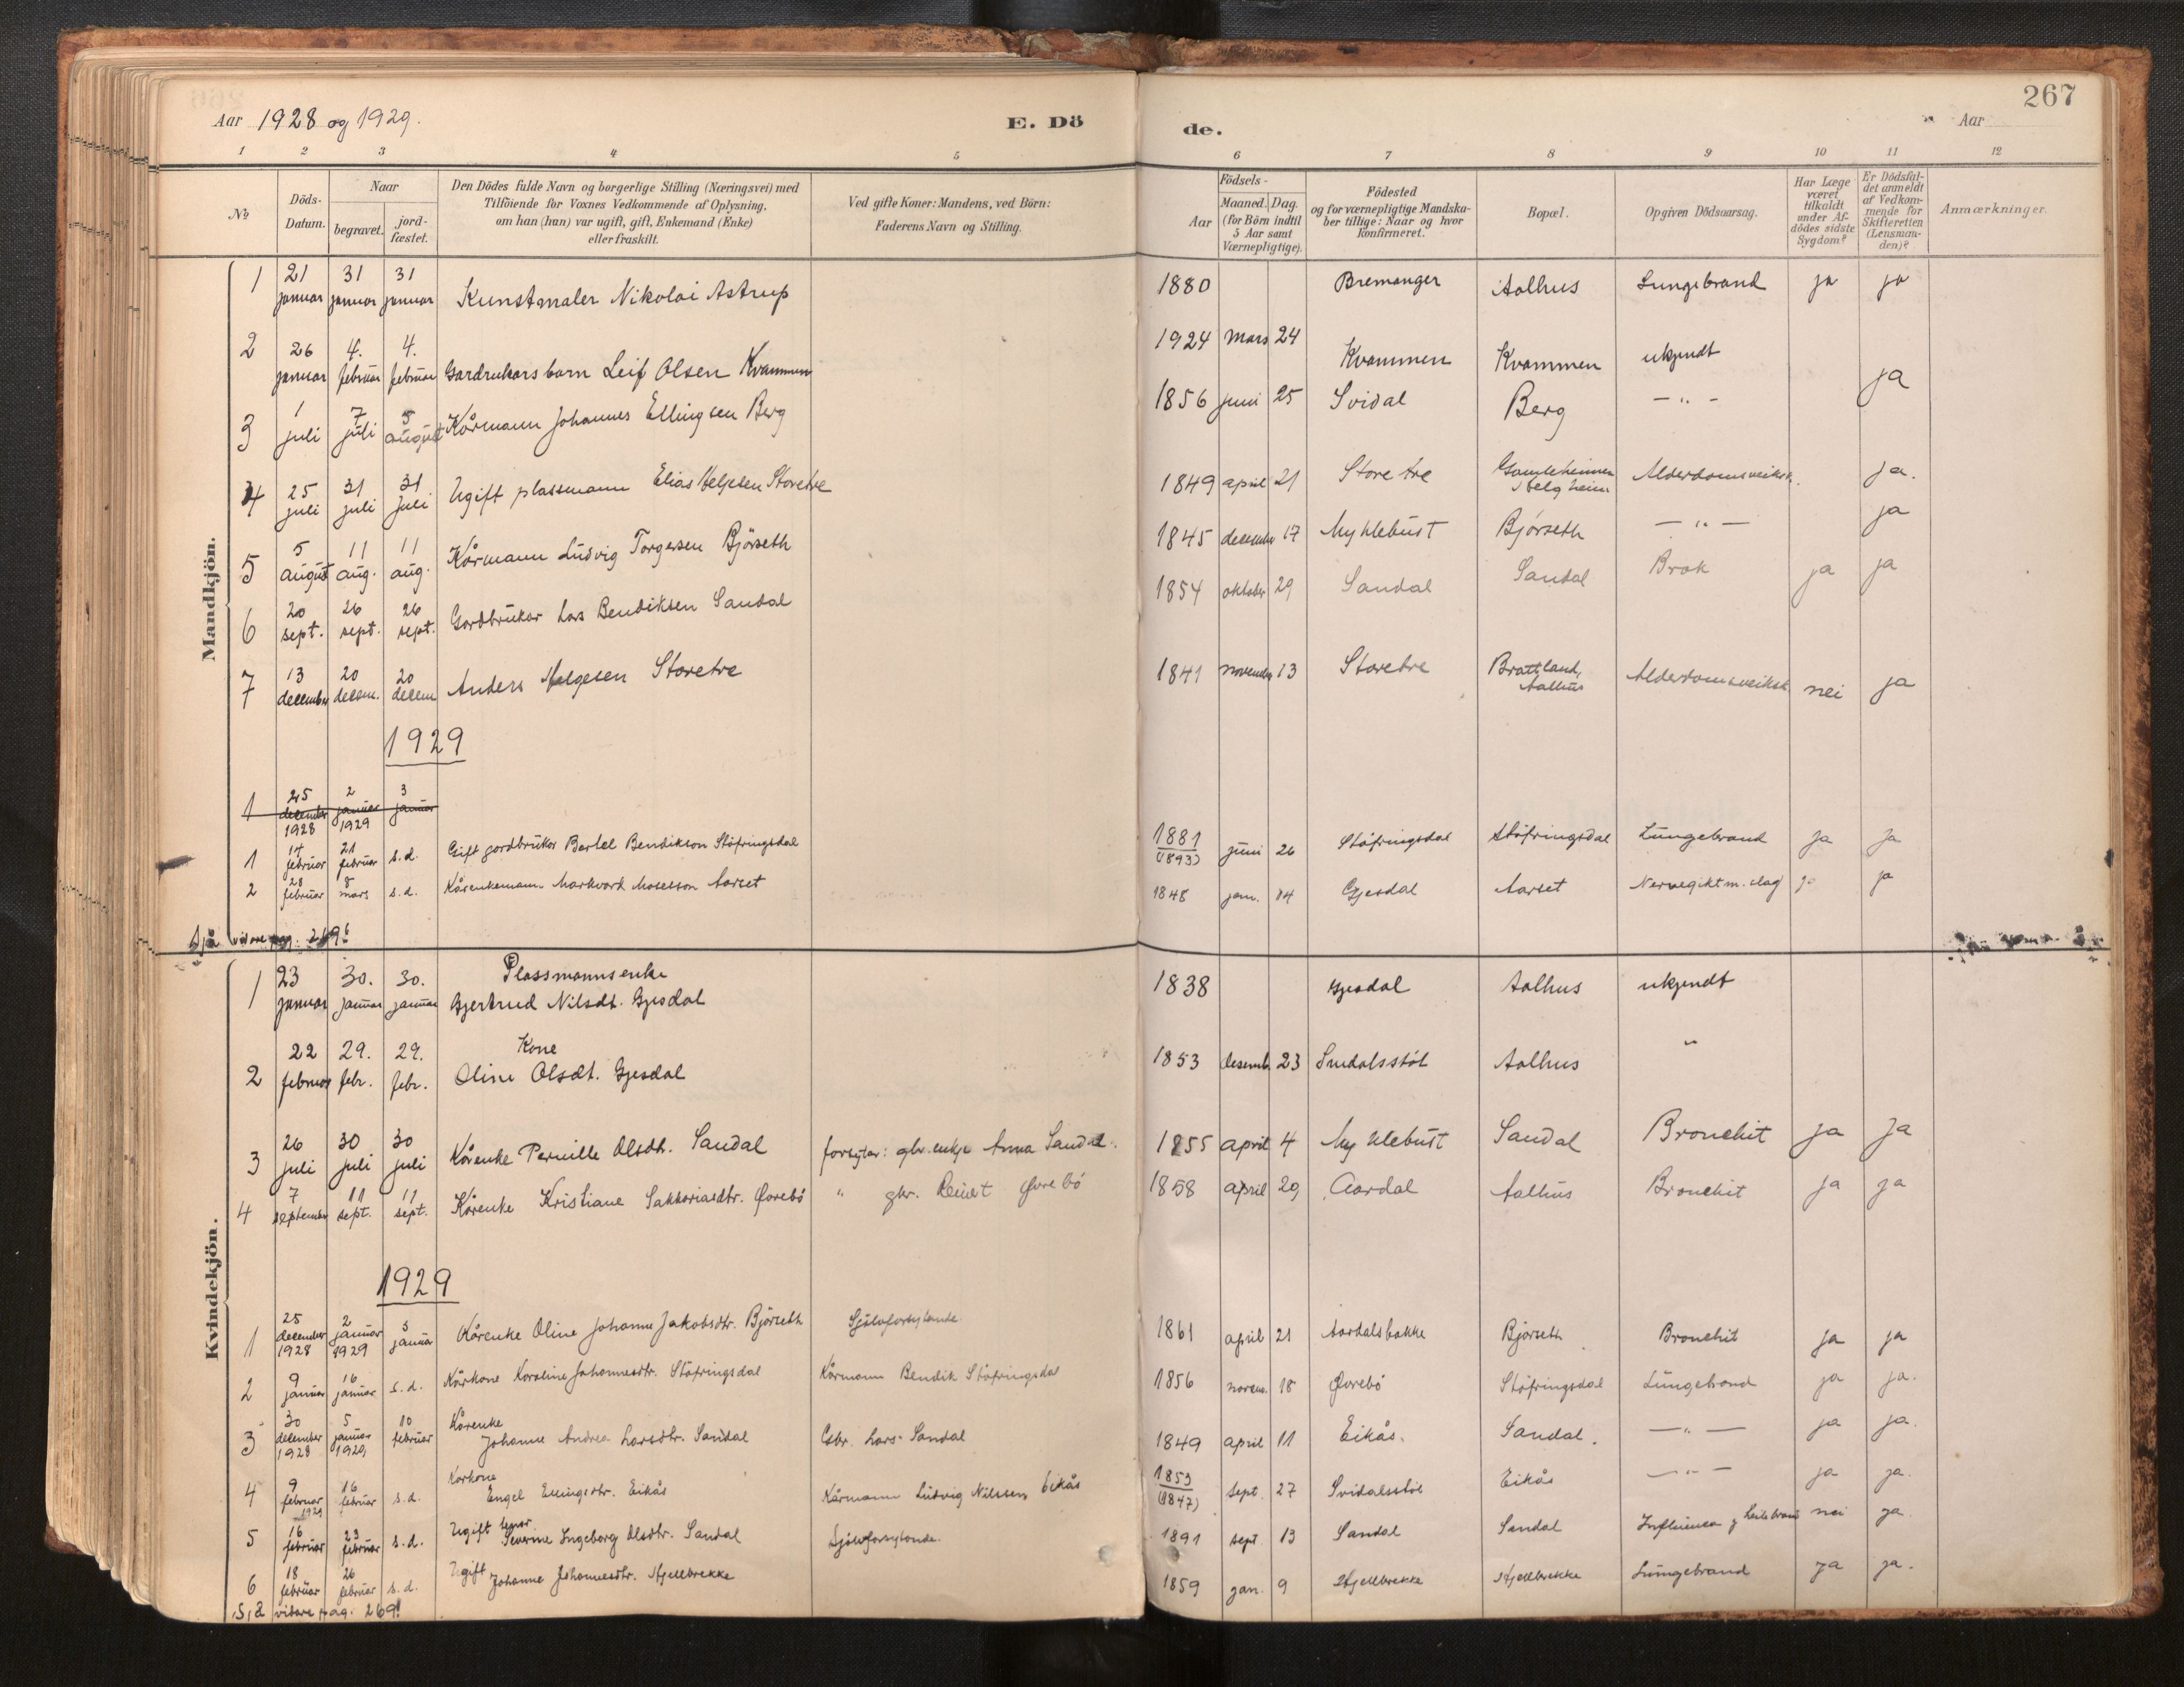 267
Aar 1928 og 1929.
E. Dö
de.
Aar
1 2 3 4 5 6 7 8 9 10 11 12
No
Döds-Datum.
Naar
begravet.
jord-fæstet.
Den Dödes fulde Navn og borgerlige Stilling (Næringsvei) med
Tilföiende for Voxnes Vedkommende af Oplysning,
om han (hun) var ugift, gift, Enkemand (Enke)
eller fraskilt.
Ved gifte Koner: Mandens, ved Börn:
Faderens Navn og Stilling.
Födsels-
Aar
Maaned. Dag.
(for Börn indtil
5 Aar samt
Værnepligtige).
Födested
og for værnepligtige Mandska-
ber tillige: Naar og hvor
konfirmeret.
Bopæl.
Opgiven Dödsaarsag.
Har Læge
været
tilkaldt
under Af-
dödes sidste
Sygdom?
Er Dödsfal-
det anmeldt
af Vedkom-
mende for
Skifteretten
(Lensman-
den)?
Anmærkninger.
Mandkjön.
1 21 januar 31 januar 31 januar Kunstmaler Nikolai Astrup 1880 Bremanger Aalhus Lungebrand ja ja
2 26 januar 4. februar 4. februar Gardrukars barn Leif Olsen Kvammen 1924 mars 24 Kvammen Kvammen ukjendt
3 1 juli 7 juli 5 august Kårmann Johannes Ellingsen Berg 1856 juni 25 Svidal Berg — " — ja
4 25 juli 31 juli 31 juli Ugift plassmann Elias Helgesen Storetre 1849 april 21 Storetre Gamleheimen Helgheim Alderdomsveiksk. ja.
5 5 august 11 aug. 11 aug. Kårmann Ludvig Torgersen Björseth 1845 december 17 Myklebust Björseth — " — ja
6 20 sept. 26 sept. 26 sept. Gardbrukar Lars Bendiksen Sandal 1854 oktober 29 Sandal Sandal Brok ja ja
7 13 december 20 decem. 20 decem Anders Helgesen Storetre 1841 november 13 Storetre Brattland, Aalhus Alderdomsveiksk nei ja
1929
1 25 december 1928 2 januar 1929 3 januar
1 14 februar 21 februar s.d. Gift gardbrukar Bertel Bendikson Stöfringsdal 1881 (1893) juni 26 Stöfringsdal Stöfringsdal Lungebrand ja ja
2 28 februar 8 mars s.d. Kårenkemann Markvard Mosesson Aarset 1848 jan. 14 Gjesdal Aarset Nervegikt m. slag ja ja
Sjå vidare pag. 269!
Kvindekjön.
1 23 januar 30. januar 30. januar Plassmannsenke
Gjertrud Nilsdt. Gjesdal 1838 Gjesdal Aalhus ukjendt
2 22 februar 29. febr. 29. febr. Kone
Oline Olsdt. Gjesdal 1853 desemb. 23 Sudalsstöl Aalhus "
3 26 juli 30 juli 30 juli Kårenke Pernille Olsdtr. Sandal forsytar: gbr.enkje Anna Sandal. 1855 april 4 Myklebust Sandal Bronchit ja ja
4 7 september 11 sept. 11 sept. Kårenke Kristiane Sakkariasdtr. Övrebö " gbr. Reinert Övrebö 1858 april 29 Aardal Aalhus Bronchit ja ja
1929
1 25 december 1928 2 januar 1929 3 januar Kårenke Oline Johanne Jakobsdtr. Björseth Sjölvforsytande. 1861 april 21 Aardalsbakke Björseth Bronchit ja ja
2 9 januar 16 januar s.d. Kårkone Karoline Johannesdtr. Stöfringsdal Kårmann Bendik Stöfringsdal 1856 novem. 18 Övrebö Stöfringsdal Lungebrand ja ja.
3 30 december 1928 5 januar 1929 10 februar Kårenke
Johanne Andrea Larsdtr. Sandal Gbr. Lars Sandal 1849 april 11 Eikås. Sandal. — " — ja ja.
4 9 februar 1929 16 februar s.d. Karkone
Engel Ellingsdtr. Eikås Kårmann Ludvig Nilssen Eikås 1853 (1847) sept. 27 Svidalsstöl Eikås — " — ja ja.
5 16 februar 23 februar s.d. Ugift
Severine Ingeborg Olsdtr. Sandal Sjölvforsytande. 1891 sept. 13 Sandal Sandal Influensa nei ja
6 18 februar 26 februar s.d. Ugift
Johanne Johannesdtr. Hjellbrekke 1859 jan. 9 Hjellbrekke Hjellbrekke Lungebrand ja ja.
Sjå vidare pag. 269!